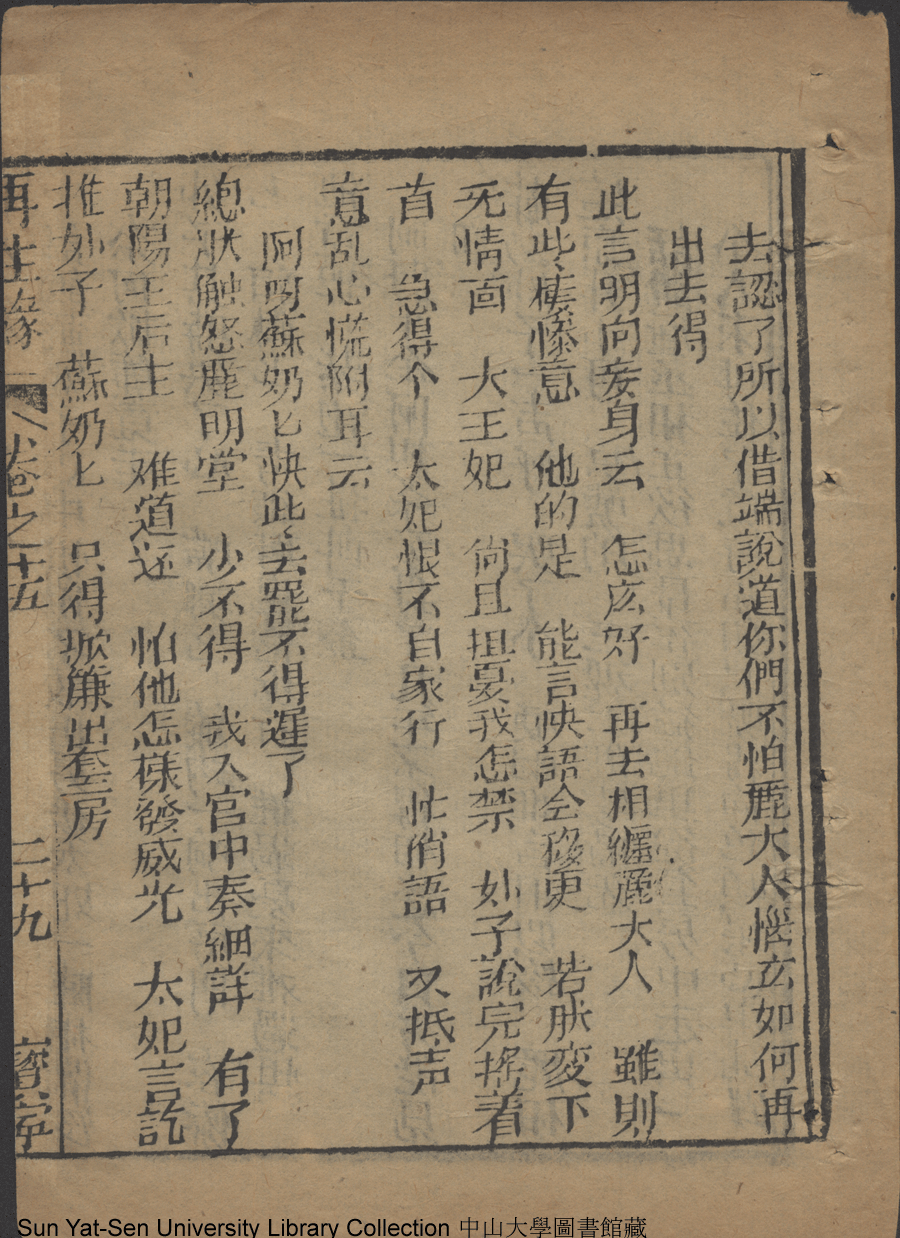 去認了所以借端說道你們不怕鹿大人惱玄如何再
出去得
此言明向妾身云 怎庅好 再去相纏鹿大人 雖則
有此悽慘意 他的是 能言快語全移更 若肰変下
旡情面 大王妃 尚且担憂我怎禁 妙子說完搖着
首 急得个 太妃恨不自家行 忙俏語 又抵声
意乱心慌附耳云
阿呀蘇奶匕快此去罷不得遲了
總肰触怒鹿明堂 少不得 我入官中奏細詳 有了
朝陽王后主 难道还 怕他怎樣發威光 太妃言訖
推妙子 蘇奶匕 只得掀簾出套房
再生緣 卷之十五 二十九 寳寧
Sun Yat-Sen University Library Collection 中山大學圖書館藏